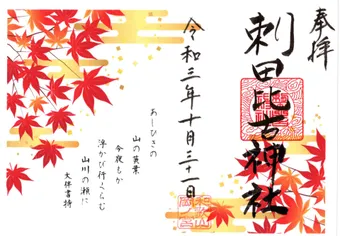 奉拝
刺田比古神社
令和三年十月三十一日
あしひきの
山の黄葉
今夜もか
浮かび行くらむ
山川の瀬に
大伴書持